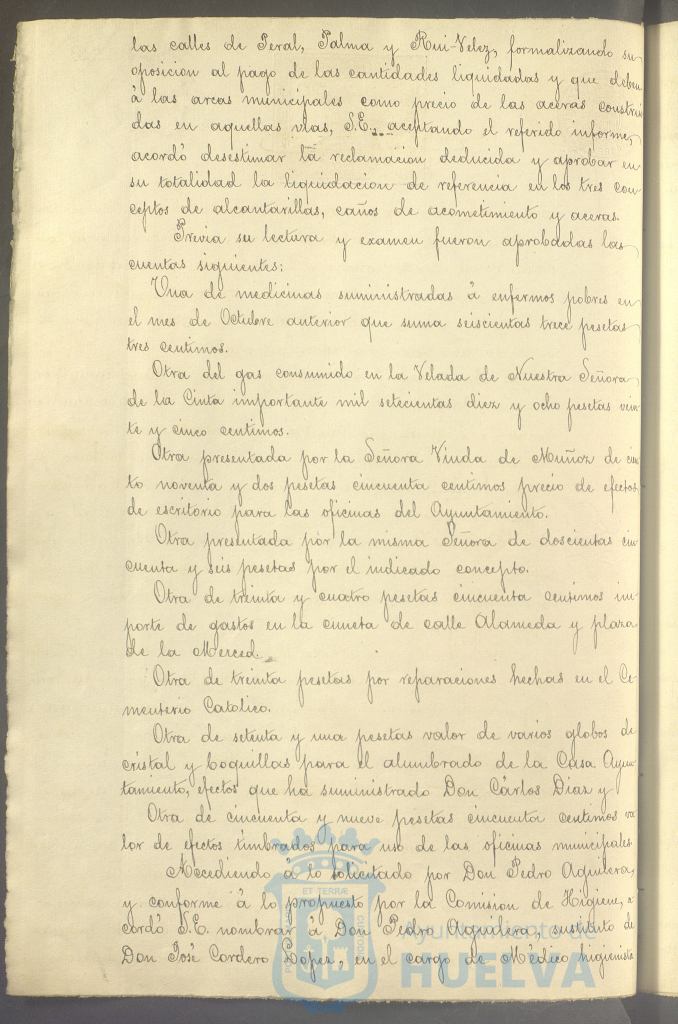 las calles de Peral, Palma y Rui-Velez, formalizando su
oposicion al pago de las cantidades liquidadas y que deben
á las arcas municipales como precio de las aceras construi
das en aquellas vias, S.E., aceptando el referido informe,
acordó desestimar la reclamacion deducida y aprobar en
su totalidad la liquidacion de referencia en los tres con
ceptos de alcantarillas, caños de acometimiento y aceras.
Prévia su lectura y examen fueron aprobadas las
cuentas siguientes:
Una de medicinas suministradas á enfermos pobres en
el mes de Octubre anterior que suma seiscientas trece pesetas
tres centimos.
Otra del gas consumido en la Velada de Nuestra Señora
de la Cinta importante mil setecientas diez y ocho pesetas vein
te y cinco centimos.
Otra presentada por la Señora Viuda de Muñoz de cien
to noventa y dos pesetas cincuenta centimos precio de efectos
de escritorio para las oficinas del Ayuntamiento.
Otra presentada por la misma Señora de doscientas cin
cuenta y seis pesetas por el indicado concepto.
Otra de treinta y cuatro pesetas cincuenta centimos im
porte de gastos en la cuneta de calle Alameda y plaza
de la Merced.
Otra de treinta pesetas por reparaciones hechas en el Ce
menterio Catolico.
Otra de setenta y una pesetas valor de varios globos de
cristal y boquillas para el alumbrado de la Casa Ayun
tamiento, efectos que ha suministrado Don Cárlos Diaz y
Otra de cincuenta y nueve pesetas cincuenta centimos va
lor de efectos timbrados para uso de las oficinas municipales
Accediendo á lo solicitado por Don Pedro Aguilera,
y conforme á lo propuesto por la Comision de Higiene, a
cordó S.E. nombrar á Don Pedro Aguilera, sustituto de
Don José Cordero Lopez, en el cargo de Médico higienista
ET TERRÆ
Ayuntamiento de
HUELVA